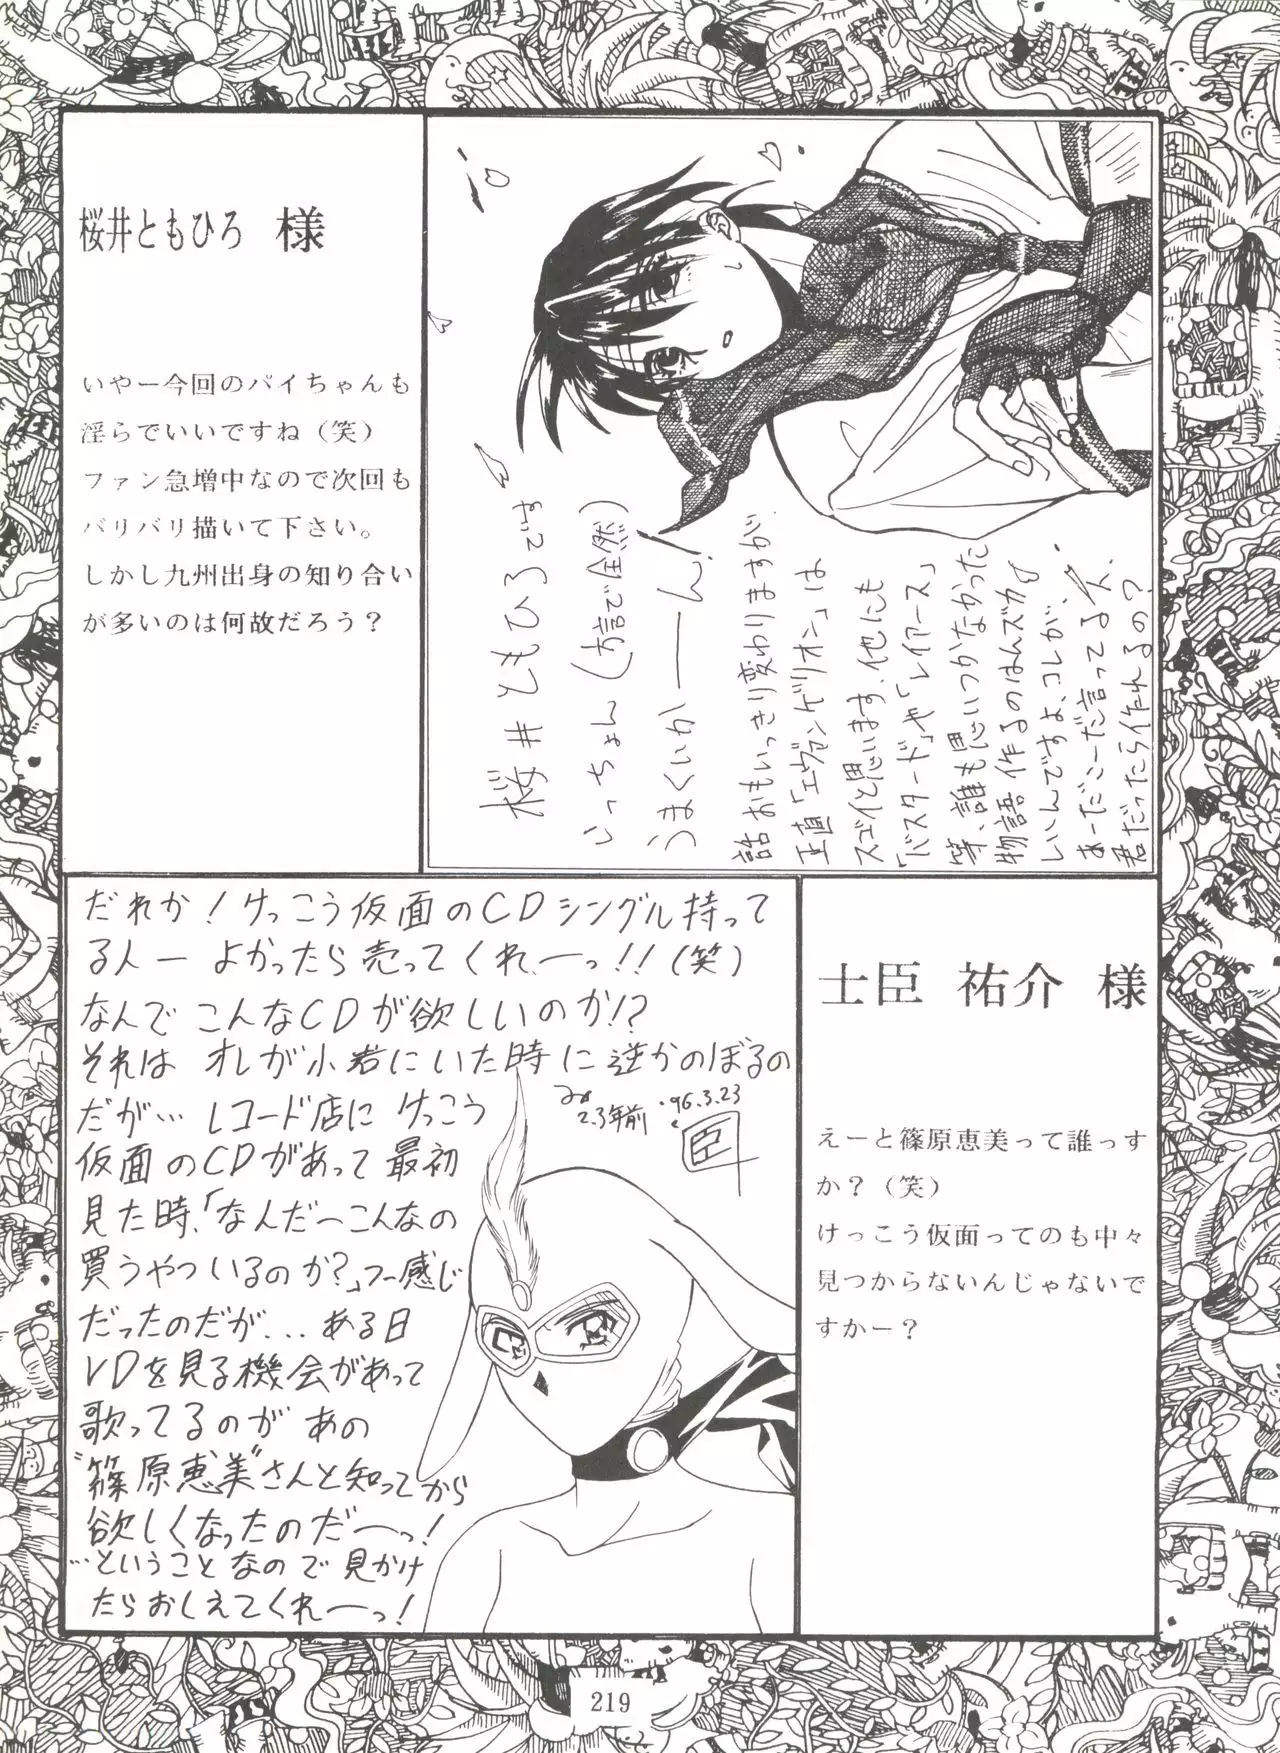 桜井ともひろ 様
いやー今回のパイちゃんも
淫らでいいですね（笑）
ファン急増中なので次回も
バリバリ描いて下さい。
しかし九州出身の知り合い
が多いのは何故だろう？
桜井ともひろです
いっちょん（方言で全然）
うまくいかーーん！
話おもいっきり変わりますが、
正直「エヴァンゲリオン」は
スゴイと思います。他にも
「バスタード」や「レイアース」
等、誰も思いつかなかった
物語作るのはムズカ
しいんですよ、コレが、
あーだこーだ言ってる人、
君だったら作れるの？
だれか！けっこう仮面のCDシングル持って
る人ー よかったら売ってくれーっ!!（笑）
なんで こんなCDが欲しいのか!?
それは オレが小倉にいた時に逆かのぼるの
だが… レコード店に けっこう
2.3年前
'96.3.23
臣
仮面のCDがあって最初
見た時、「なんだーこんなの
買うやついるのか？」つー感じ
だったのだが… ある日
VDを見る機会があって
歌ってるのが あの
"篠原恵美"さんと知ってから
欲しくなったのだーっ！
…ということなので 見かけ
たらおしえてくれーっ！
士臣 祐介 様
えーと篠原恵美って誰っす
か？（笑）
けっこう仮面ってのも中々
見つからないんじゃないで
すかー？
219